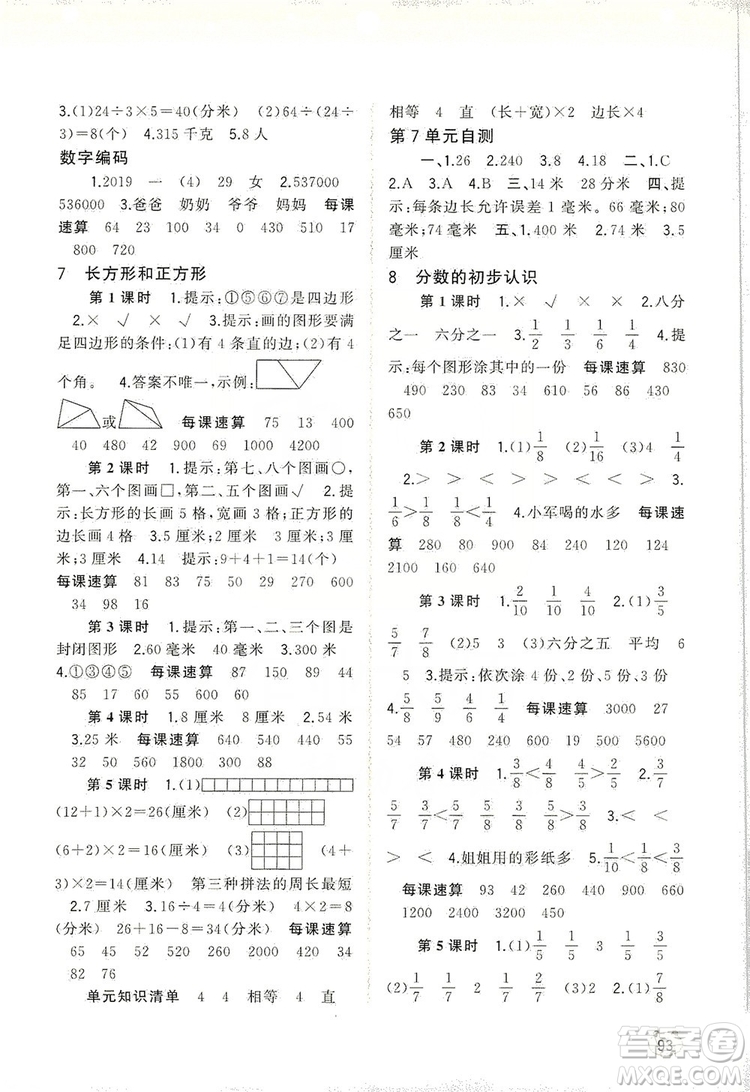 3.(1)24÷3×5=40(分米) (2)64÷(24÷
3)=8(个) 4.315 千克 5.8 人
数字编码
1.2019 一 (4) 29 女 2.537000
536000 3.爸爸 奶奶 爷爷 妈妈 每课
速算 17 66 24 0 0 930 450
800 720
7 长方形和正方形
第 1 课时 1.提示:①⑤⑥⑦是四边形
2.× √ × √ 3.提示:画的图形要满
足四边形的条件:(1)有 4 条直的边;(2)有 4
个角。 4.答案不唯一,示例:
或 每课速算 75 13 400
40 480 42 900 1000 4200
第 2 课时 1.提示:第七、八个图画○,
第一、六个图画□,第二、五个图画√ 2.提
示:长方形的长画 5 格,宽画 3 格;正方形的
边长画 4 格 3.5 厘米;2 厘米 3 厘米;3 厘
米;3 厘米 4.14 提示:9+4+1=14(厘米)
每课速算 81 83 75 50 29 27 600
34 98 16
第 3 课时 1.提示:第一、二、三个图是
封闭图形 2.60 毫米 40 毫米 3.300 米
4.①③④⑤ 每课速算 87 150 89 44
85 17 60 55 600 640
第 4 课时 1.8 厘米 8 厘米 2.54 米
3.25 米 每课速算 640 540 440 55
32 50 58 1800 200 88
第 5 课时 1.(1)
(12+1)×2=26(厘米) (2)
(6+2)×2=16(厘米) (3) (4+
3)×2=14(厘米) 第三种拼法的周长最短
2.7 厘米 3.16÷4=4(分米) 4×2=8
(分米) 26+16-8=34(分米) 每课速算
65 45 52 560 2000 420 34
82 76
单元知识清单 4 4 相等 4 直
相等 4 直 (长+宽)×2 边长×4
第 7 单元自测
一、1.26 2.240 3.8 4.18 二、1.C
2.A 3.A 4.B 三、14 米 28 分米 四、提
示:每条边长允许误差 1 毫米。66 毫米;80
毫米;74 毫米 五、1.40 米 2.40 米 3.5
厘米
8 分数的初步认识
第 1 课时 1.× × √ √ 2.八分
之一 六分之一 3.1/2 1/8 1/3 1/5 4.
提示:每个图形涂其中的一份 每课速算 830
490 230 83 34 60 430 230 860
650
第 2 课时 1.(1)1/8 (2)1/16 (3)4 1/4
2.> > > < < > < < 3.
1/6>1/8 1/4<1/2 4.小军喝的水多 每课速
算 280 80 90 240 120 99 124
2100 160 640
第 3 课时 1.2/10 1/10 4/10 2.(1)8
5/7 7/8 (2)5 (3)六分之五 平均 6
5 3.提示:依次涂 4 份、5 份、3 份
4.5/8 4/9 5/9 5/6 每课速算 3000 27
54 57 6000 480 42 800 46 90
第 4 课时 1.3/8<7/8 2/5<3/5
5/7 3/7 5/7>3/7 5/8 3/8 5/8>3/8 2.> < <
> < 4.姐姐用的彩纸多 5.1/10<1/8<3/8
每课速算 93 42 260 440 660
4200 2400 900 85 120
第 5 课时 1.(1)1/5 1/5 3 3/5